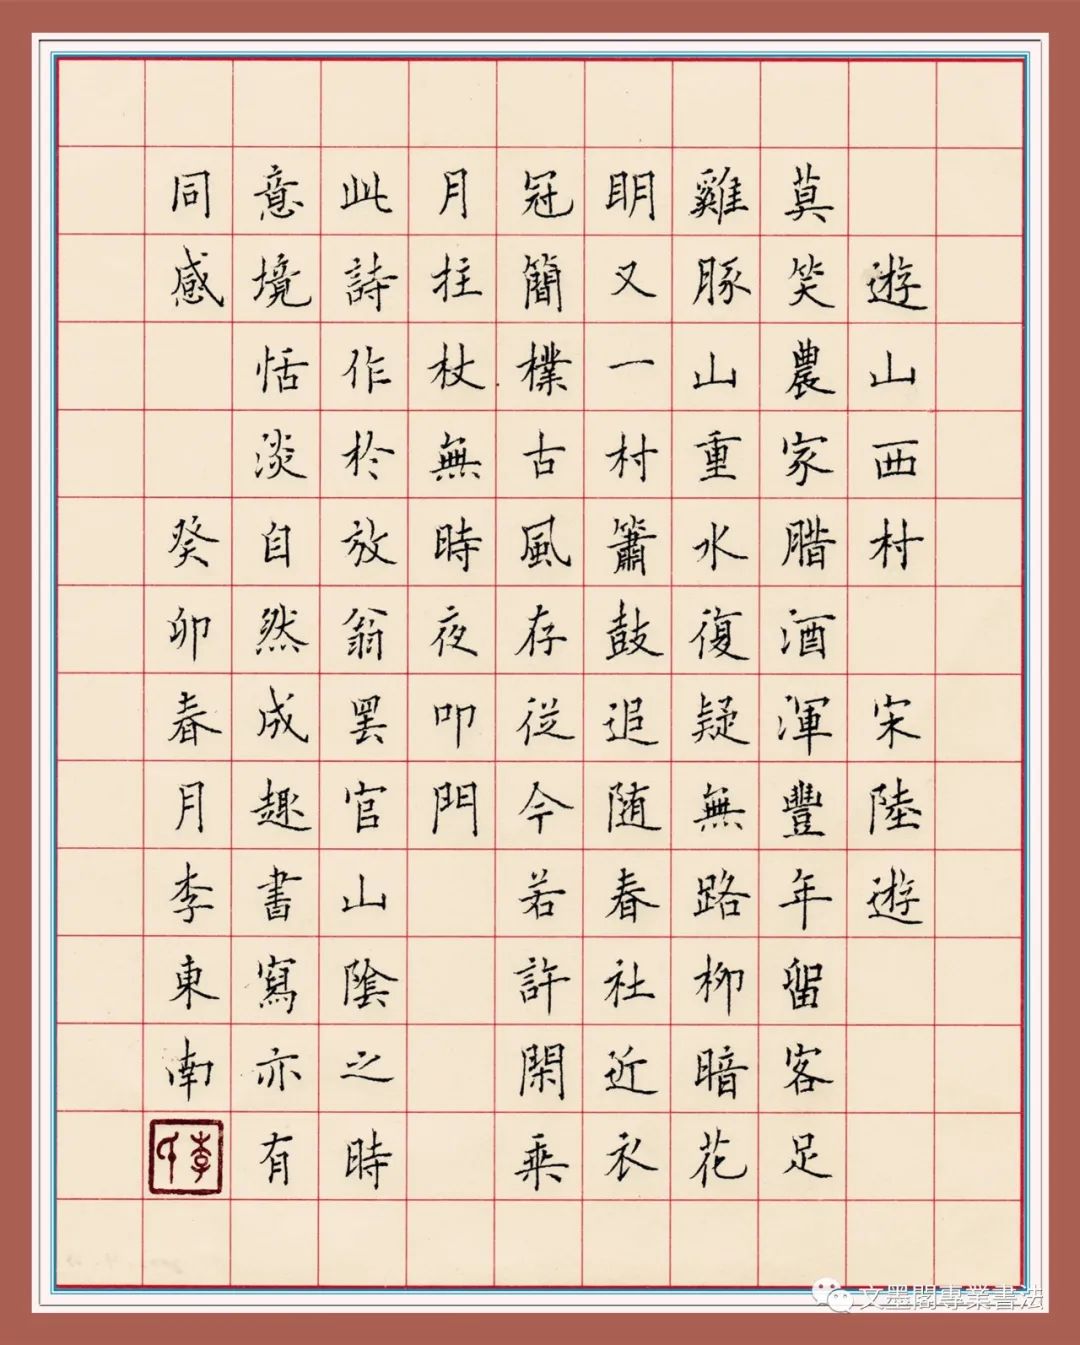 遊山西村 宋陸遊
莫笑農家腊酒渾豐年留客足
雞豚山重水復疑無路柳暗花
明又一村簫鼓追随春社近衣
冠簡樸古風存從今若許閑乘
月拄杖無時夜叩門
此詩作於放翁罢官山陰之時
意境恬淡自然成趣書寫亦有
同感 癸卯春月李東南
李氏
文墨閣專業書法